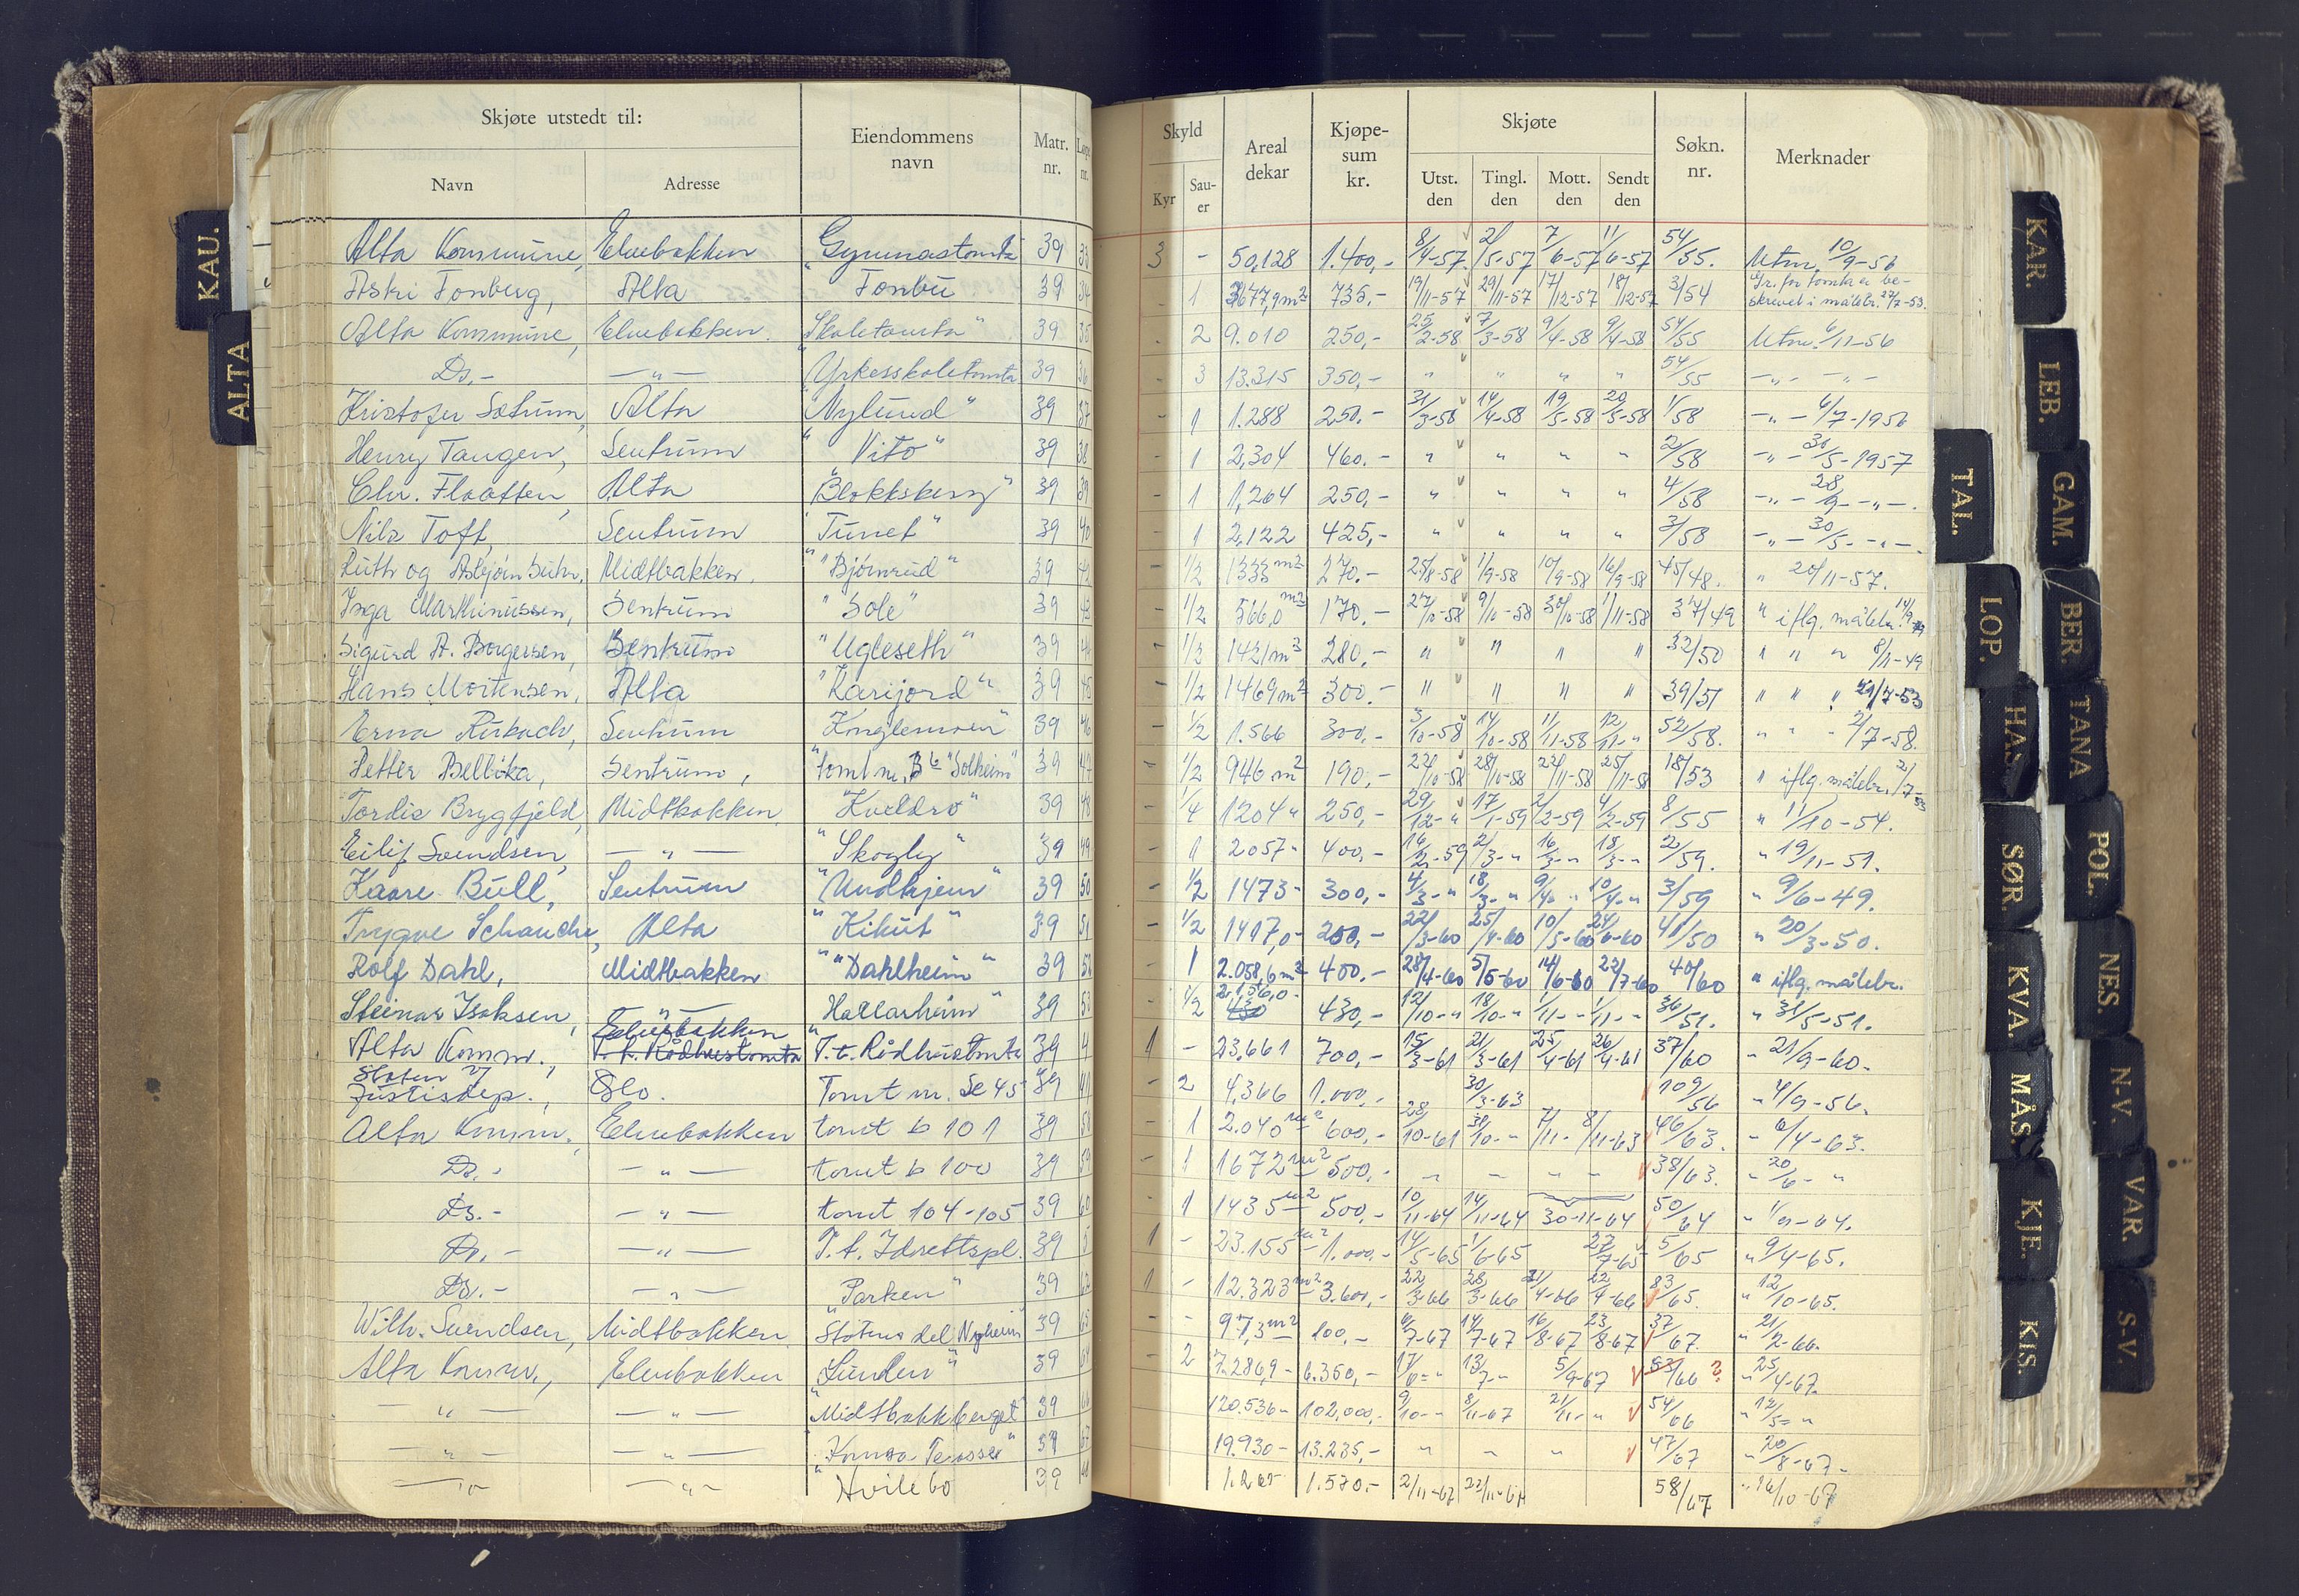 Skjøte utstedt til:
Navn Adresse Eiendommens navn Matr. nr. Løpe nr.
Skyld Kyr Sauer Areal dekar Kjøpesum kr. Skjøte Utst. den Tingl. den Mott. den Sendt den Søkn. nr. Merknader
Alta Kommune, Elvebakken "Gymnastomta 39 33 3 - 50,128 1.400,- 8/4-57 2/5-57 7/6-57 11/6-57 54/55. Utm. 10/9-56
Astri Fonberg, Alta Fonbu 39 34 - 1 3677,9 m2 735,- 19/11-57 29/11-57 17/12-57 18/12-57 3/54 Gr. for tomta er beskrevet i målebr. 27/7-53.
Alta Kommune, Elvebakken. "Skoletomta" 39 35 - 2 9.010 250,- 25/2-58 7/3-58 9/4-58 9/4-58 54/55 Utm. 6/11-56
Ds.- —"— "Yrkesskoletomta 39 36 - 3 13.315 350,- " " " " 54/55 —"— —"—
Kristofer Sætrum, Alta "Nylund" 39 37 - 1 1.288 250.- 31/3-58 14/4-58 19/5-58 20/5-58 1/58 —"— 6/7-1956
Henry Tangen, Sentrum "Vito" 39 38 - 1 2,304 460.- " " " " 2/58 —"— 30/5-1957
Chr. Flaatten, Alta "Blokksberg" 39 39 - 1 1,264 250,- " " " " 4/58 —"— 28/9 —"—.
Nils Toft, Sentrum "Tunet" 39 40 - 1 2,122 425,- " " " " 3/58 —"— 30/5 —"—.
Ruth og Asbjørn Suhr, Midtbakken. "Bjørnrud" 39 42 - 1/2 1333 m2 270.- 25/8-58 1/9-58 10/9-58 16/9-58 45/48. " 20/11-57.
Inga Marthinussen, Sentrum "Sole" 39 43 - 1/2 566,0 m2 170.- 27/10-58 9/10-58 30/10-58 1/11-58 37/49 " iflg. målebr.
Sigurd A. Borgersen, Sentrum "Ugleseth" 39 44 - 1/2 1421 m2 280,- " " " " 32/50 " " " 8/11-49
Hans Mortensen, Alta "Karijord" 39 45 - 1/2 1469 m2 300.- " " " " 39/51 " " " 21/7-53
Erna Rubach, Sentrum "Konglemoen" 39 46 - 1/2 1.566 300,- 3/10-58 14/10-58 11/11-58 12/11-" 52/58. " " " 2/7-58.
Petter Bellika, Sentrum, "Tomt nr. B 6 "Solheim" 39 47 - 1/2 946 m2 190,- 22/10-58 28/10-58 24/11-58 25/11-58 18/53 " iflg. målebr. 2/7-53
Tordis Brygfjeld, Midtbakken. "Kveldro" 39 48 - 1/4 1204 " 250,- 29/12-" 17/1-59 2/2-59 4/2-59 8/55 " 11/10-54.
Eilif Svendsen, —"— "Skogly" 39 49 - 1 2057 " 400,- 16/2-59 2/3-" 16/3-" 18/3-" 2/59. " 19/11-59.
Kaare Bull, Sentrum "Undhjem" 39 50 - 1/2 1473 - 300,- 4/3-" 18/3-" 9/4-" 10/4-" 3/59 " 9/6-49.
Trygve Schanche, Alta "Kikut" 39 51 - 1/2 1417,0 - 200,- 22/3-60 25/4-60 10/5-60 24/6-60 41/50 " 20/3-50.
Rolf Dahl, Midtbakken "Dahlheim" 39 52 - 1 2.058,6 m2 400.- 28/4-60 5/5-60 14/6-60 22/7-60 40/60 " iflg. målebr.
Steinar Isaksen, —"— Hallarheim" 39 53 - 1/2 2.156,0 - 430,- 12/10-" 18/10-" 1/11-" 1/11-" 36/51. " 31/5-51.
Alta Komm., Elvebakken "T.t. Rådhustomta 39 4 1 - 23,661 700,- 15/3-61 21/3-61 25/4-61 26/4-61 37/60 " 21/9-60.
Staten v/ Justisdep., Oslo. Tomt nr. Se 45 39 41 - 2 4,366 1.000,- 30/3-63 109/56 " 4/9-56.
Alta Komm. Elvebakken tomt b 101 39 58 - 1 2.040 m2 600,- 28/10-61 31/10-" 7/11- 8/11-63 46/63. " 6/4-63.
Ds.- —"— tomt b 100 39 59 - 1 1672 m2 500,- " " " " 38/63. " 20/6-"
Ds.- —"— tomt 104-105 39 60 - 1 1435 m2 500,- 10/11-64 14/11-64 30-11-64 50/64 " 1/9-64.
Ds.- —"— T.t. Idrettspl. 39 5 1 - 23.155 m2 1.000,- 14/5-65 1/6-65 27/7-65 5/65 " 9/4-65.
Ds.- —"— "Parken" 39 62 1 - 12.323 m2 3.600,- 22/3-66 28/3-66 21/4-66 22/4-66 83/65. " 12/10-65.
Wilh. Svendsen, Midtbakken "Statens del Nyheim" 39 65 - - 97,3 m2 100,- 4/7-67 14/7-67 16/8-67 23/8-67 37/67. " 21/2-66.
Alta Komm., Elvebakken "Lunden" 39 64 - 2 7.286,9 - 6.350,- 17/6-" 13/7-" 5/9-67 83/66 ? " 25/4-67.
—"— —"— "Midtbakkberget" 39 66 120.536 - 102,000,- 9/10-" 8/11-67 21/11-" 54/66 " 12/5-"
—"— —"— "Komsa Terasse" 39 67 19.930 - 13.235,- " " " 47/67 " 20/8-67-
—"— —"— "Hvilebo 39 1.265 1.570.- 2/11-67 22/11-67 58/67 " 16/10-67
KAU.
ALTA
KAR.
LEB.
GAM.
TAL.
BER.
LOP.
TANA
HAS.
POL.
SØR.
NES.
KVA.
N-V.
MÅS.
VAR.
KJE.
S-V.
KIS.